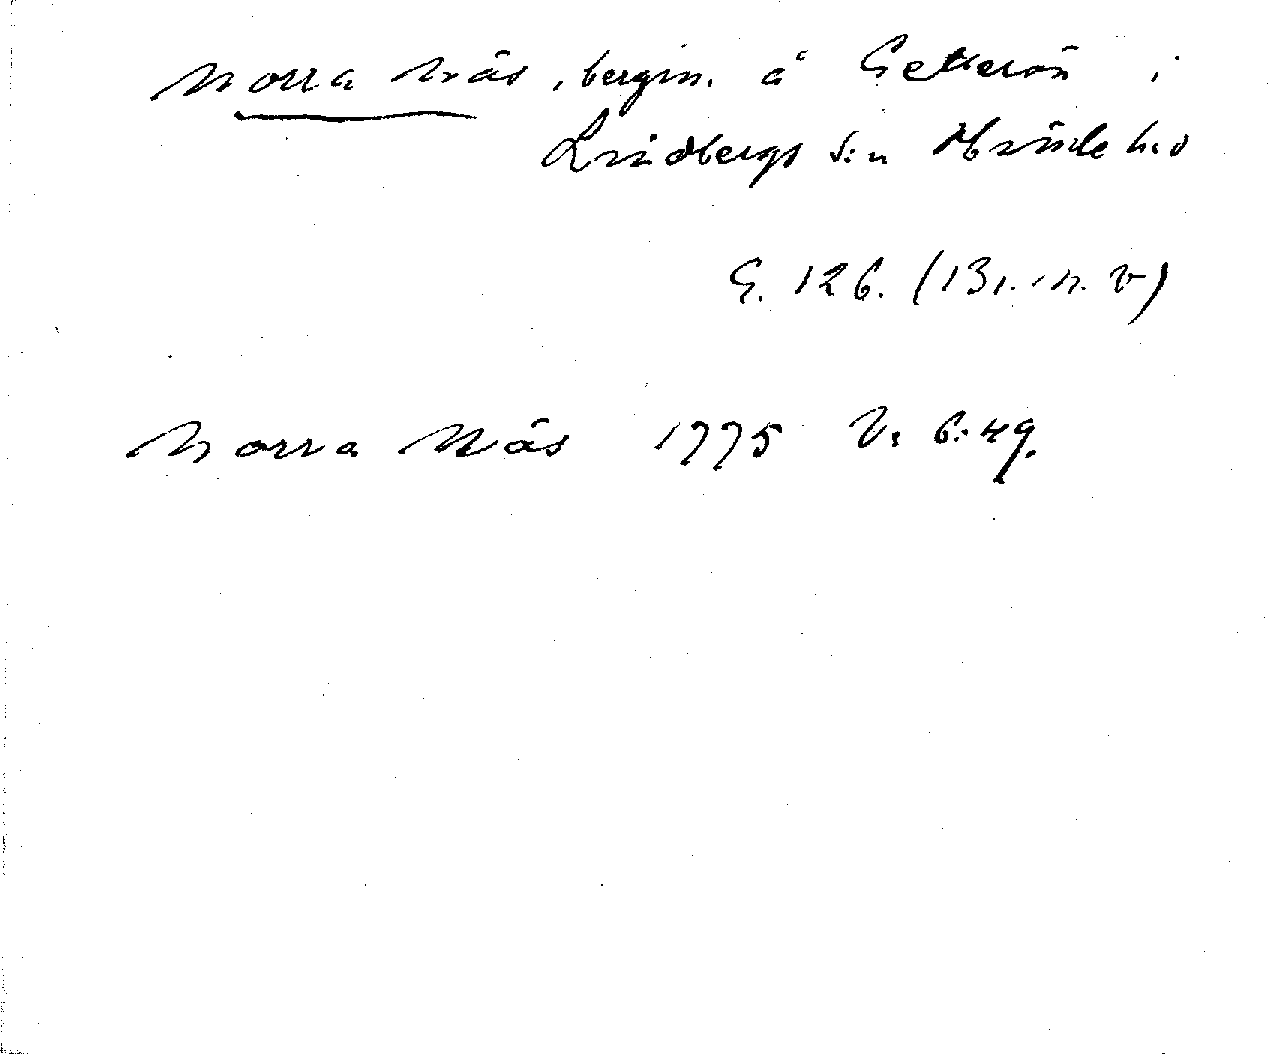 Norra Näs, bergn. å Getterön i
Lindbergs s:n Himle hd
G. 126. (131. n. v)
Norra Näs 1775 V2 6:49.